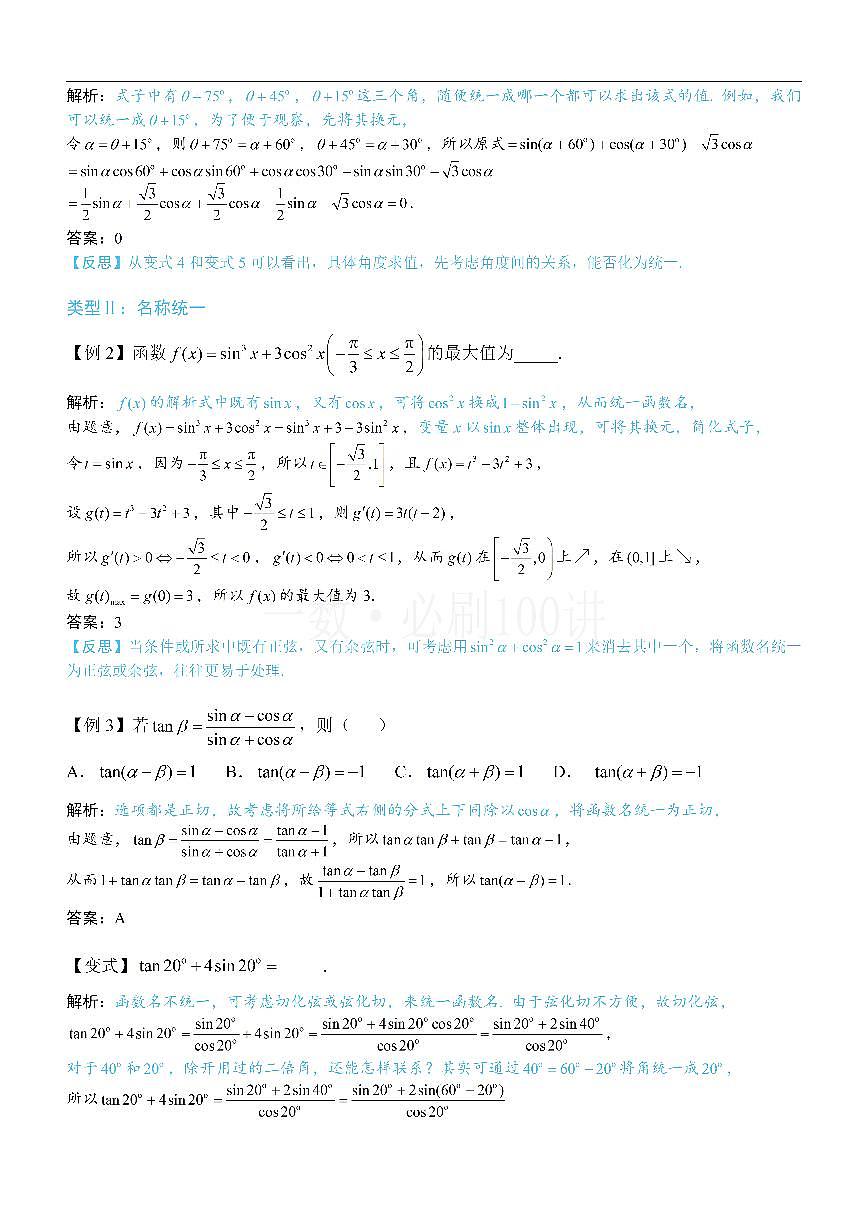 解析：式子中有θ+75°，θ+45°，θ+15°这三个角，随便统一成哪一个都可以求出该式的值. 例如，我们
可以统一成θ+15°，为了便于观察，先将其换元，
令α=θ+15°，则θ+75°=α+60°，θ+45°=α+30°，所以原式=sin(α+60°)+cos(α+30°) √3cosα
=sinαcos60°+cosαsin60°+cosαcos30°−sinαsin30°−√3cosα
=1/2sinα+√3/2cosα+√3/2cosα 1/2sinα √3cosα=0.
答案：0
【反思】从变式4和变式5可以看出，具体角度求值，先考虑角度间的关系，能否化为统一.
类型Ⅱ：名称统一
【例2】函数f(x)=sin³x+3cos²x(−π/3≤x≤π/2)的最大值为_____.
解析：f(x)的解析式中既有sinx，又有cosx，可将cos²x换成1−sin²x，从而统一函数名，
由题意，f(x)=sin³x+3cos²x=sin³x+3−3sin²x，变量x以sinx整体出现，可将其换元，简化式子，
令t=sinx，因为−π/3≤x≤π/2，所以t∈[−√3/2,1]，且f(x)=t³−3t²+3，
设g(t)=t³−3t²+3，其中−√3/2≤t≤1，则g′(t)=3t(t−2)，
所以g′(t)>0⇔−√3/2≤t<0，g′(t)<0⇔0<t≤1，从而g(t)在[−√3/2,0)上↗，在(0,1]上↘，
故g(t)max=g(0)=3，所以f(x)的最大值为3.
一数·必刷100讲
答案：3
【反思】当条件或所求中既有正弦，又有余弦时，可考虑用sin²α+cos²α=1来消去其中一个，将函数名统一
为正弦或余弦，往往更易于处理.
【例3】若tanβ=(sinα−cosα)/(sinα+cosα)，则（ ）
A． tan(α−β)=1 B．tan(α−β)=−1 C．tan(α+β)=1 D． tan(α+β)=−1
解析：选项都是正切，故考虑将所给等式右侧的分式上下同除以cosα，将函数名统一为正切，
由题意，tanβ=(sinα−cosα)/(sinα+cosα)=(tanα−1)/(tanα+1)，所以tanαtanβ+tanβ=tanα−1，
从而1+tanαtanβ=tanα−tanβ，故(tanα−tanβ)/(1+tanαtanβ)=1，所以tan(α−β)=1.
答案：A
【变式】tan20°+4sin20°= .
解析：函数名不统一，可考虑切化弦或弦化切，来统一函数名. 由于弦化切不方便，故切化弦，
tan20°+4sin20°=sin20°/cos20°+4sin20°=(sin20°+4sin20°cos20°)/cos20°=(sin20°+2sin40°)/cos20°，
对于40°和20°，除开用过的二倍角，还能怎样联系？其实可通过40°=60°−20°将角统一成20°，
所以tan20°+4sin20°=(sin20°+2sin40°)/cos20°=(sin20°+2sin(60°−20°))/cos20°